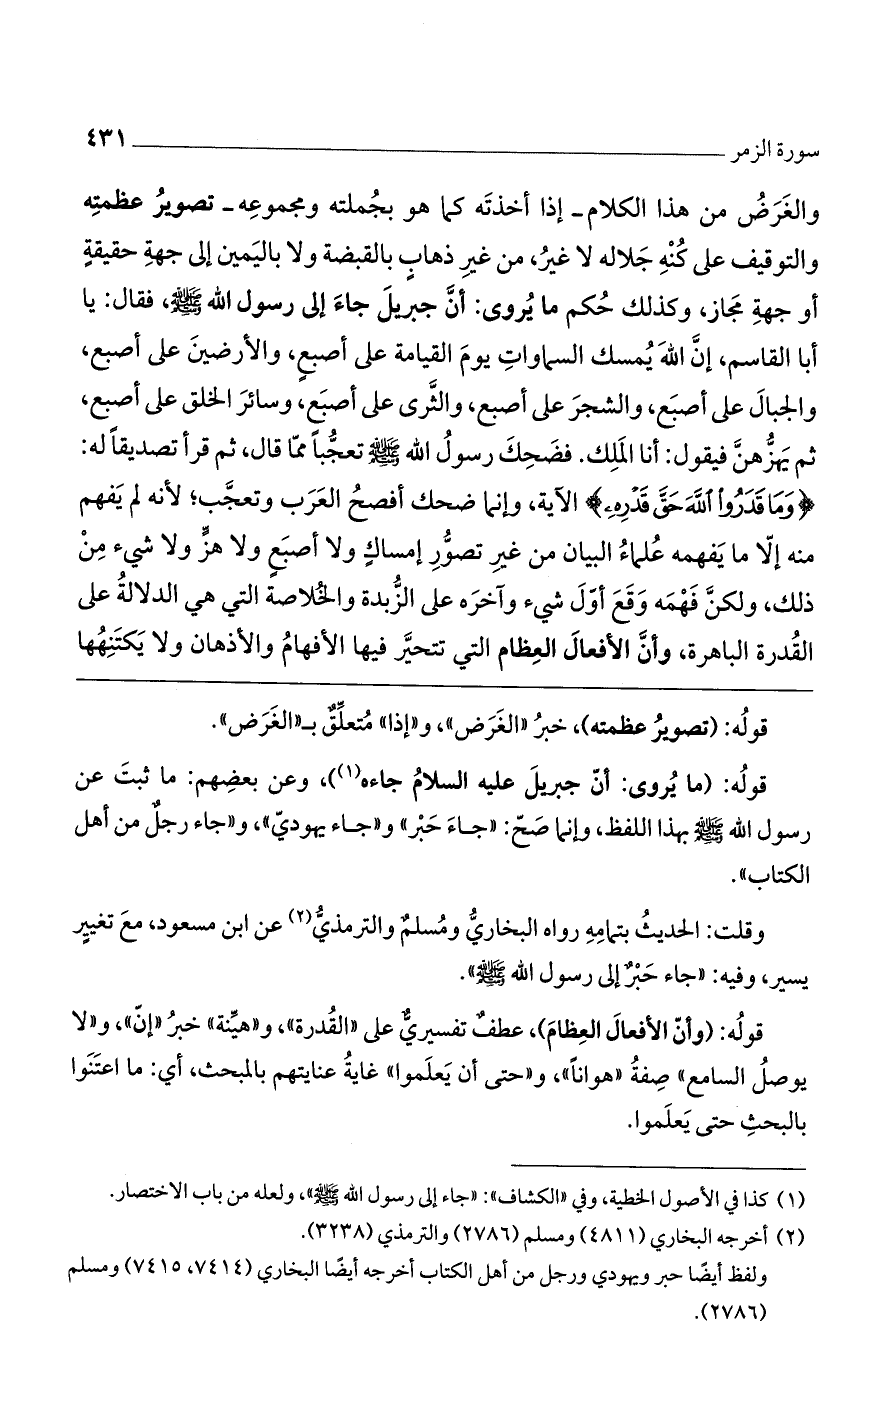 سورة الزمر ٤٣١
والغَرَضُ من هذا الكلام ـ إذا أخذتَه كما هو بجُملته ومجموعِه ـ تصويرُ عظمتِه
والتوقيف على كُنْهِ جَلاله لا غيرُ، من غيرِ ذهابٍ بالقبضة ولا باليَمين إلى جهةِ حقيقةٍ
أو جهةِ مَجاز، وكذلك حُكم ما يُروى: أنَّ جبريلَ جاءَ إلى رسول الله ﷺ، فقال: يا
أبا القاسم، إنَّ اللهَ يُمسك السماواتِ يومَ القيامة على أصبعٍ، والأرضينَ على أصبع،
والجبالَ على أصبَع، والشجرَ على أصبع، والثَّرى على أصبَع، وسائرَ الخلق على أصبع،
ثم يَهزُّهنَّ فيقول: أنا المَلِك. فضَحِكَ رسولُ الله ﷺ تعجُّباً ممّا قال، ثم قرأ تصديقاً له:
﴿وَمَا قَدَرُوا۟ ٱللَّهَ حَقَّ قَدْرِهِۦ﴾ الآية، وإنما ضحك أفصحُ العَرَب وتعجَّب؛ لأنه لم يَفهم
منه إلّا ما يَفهمه عُلماءُ البيان من غيرِ تصوُّرِ إمساكٍ ولا أصبَعٍ ولا هزٍّ ولا شيء مِنْ
ذلك، ولكنَّ فَهْمَه وَقَعَ أوّلَ شيء وآخرَه على الزُّبدة والخُلاصة التي هي الدلالةُ على
القُدرة الباهرة، وأنَّ الأفعالَ العِظام التي تتحيَّر فيها الأفهامُ والأذهان ولا يَكتَنِهُها
قولُه: (تصويرُ عظمته)، خبرُ «الغَرَض»، و«إذا» مُتعلِّقٌ بـ«الغَرَض».
قولُه: (ما يُروى: أنّ جبريلَ عليه السلامُ جاءه(١))، وعن بعضِهم: ما ثبتَ عن
رسول الله ﷺ بهذا اللفظ، وإنما صَحّ: «جـاءَ حَبْر» و«جـاء يهوديّ»، و«جاء رجلٌ من أهل
الكتاب».
وقلت: الحديثُ بتمامِهِ رواه البخاريُّ ومُسلمٌ والترمذيُّ(٢) عن ابن مسعود، معَ تغييرٍ
يسير، وفيه: «جاء حَبْرٌ إلى رسول الله ﷺ».
قولُه: (وأنّ الأفعالَ العِظامَ)، عطفٌ تفسيريٌّ على «القُدرة»، و«هيِّنة» خبرُ «إنّ»، و«لا
يوصلُ السامع» صِفةُ «هواناً»، و«حتى أن يَعلَموا» غايةُ عنايتهم بالمبحث، أي: ما اعتَنَوا
بالبحثِ حتى يَعلَموا.
(١) كذا في الأصول الخطية، وفي «الكشاف»: «جاء إلى رسول الله ﷺ»، ولعله من باب الاختصار.
(٢) أخرجه البخاري (٤٨١١) ومسلم (٢٧٨٦) والترمذي (٣٢٣٨).
ولفظ أيضًا حبر ويهودي ورجل من أهل الكتاب أخرجه أيضًا البخاري (٧٤١٤، ٧٤١٥) ومسلم
(٢٧٨٦).